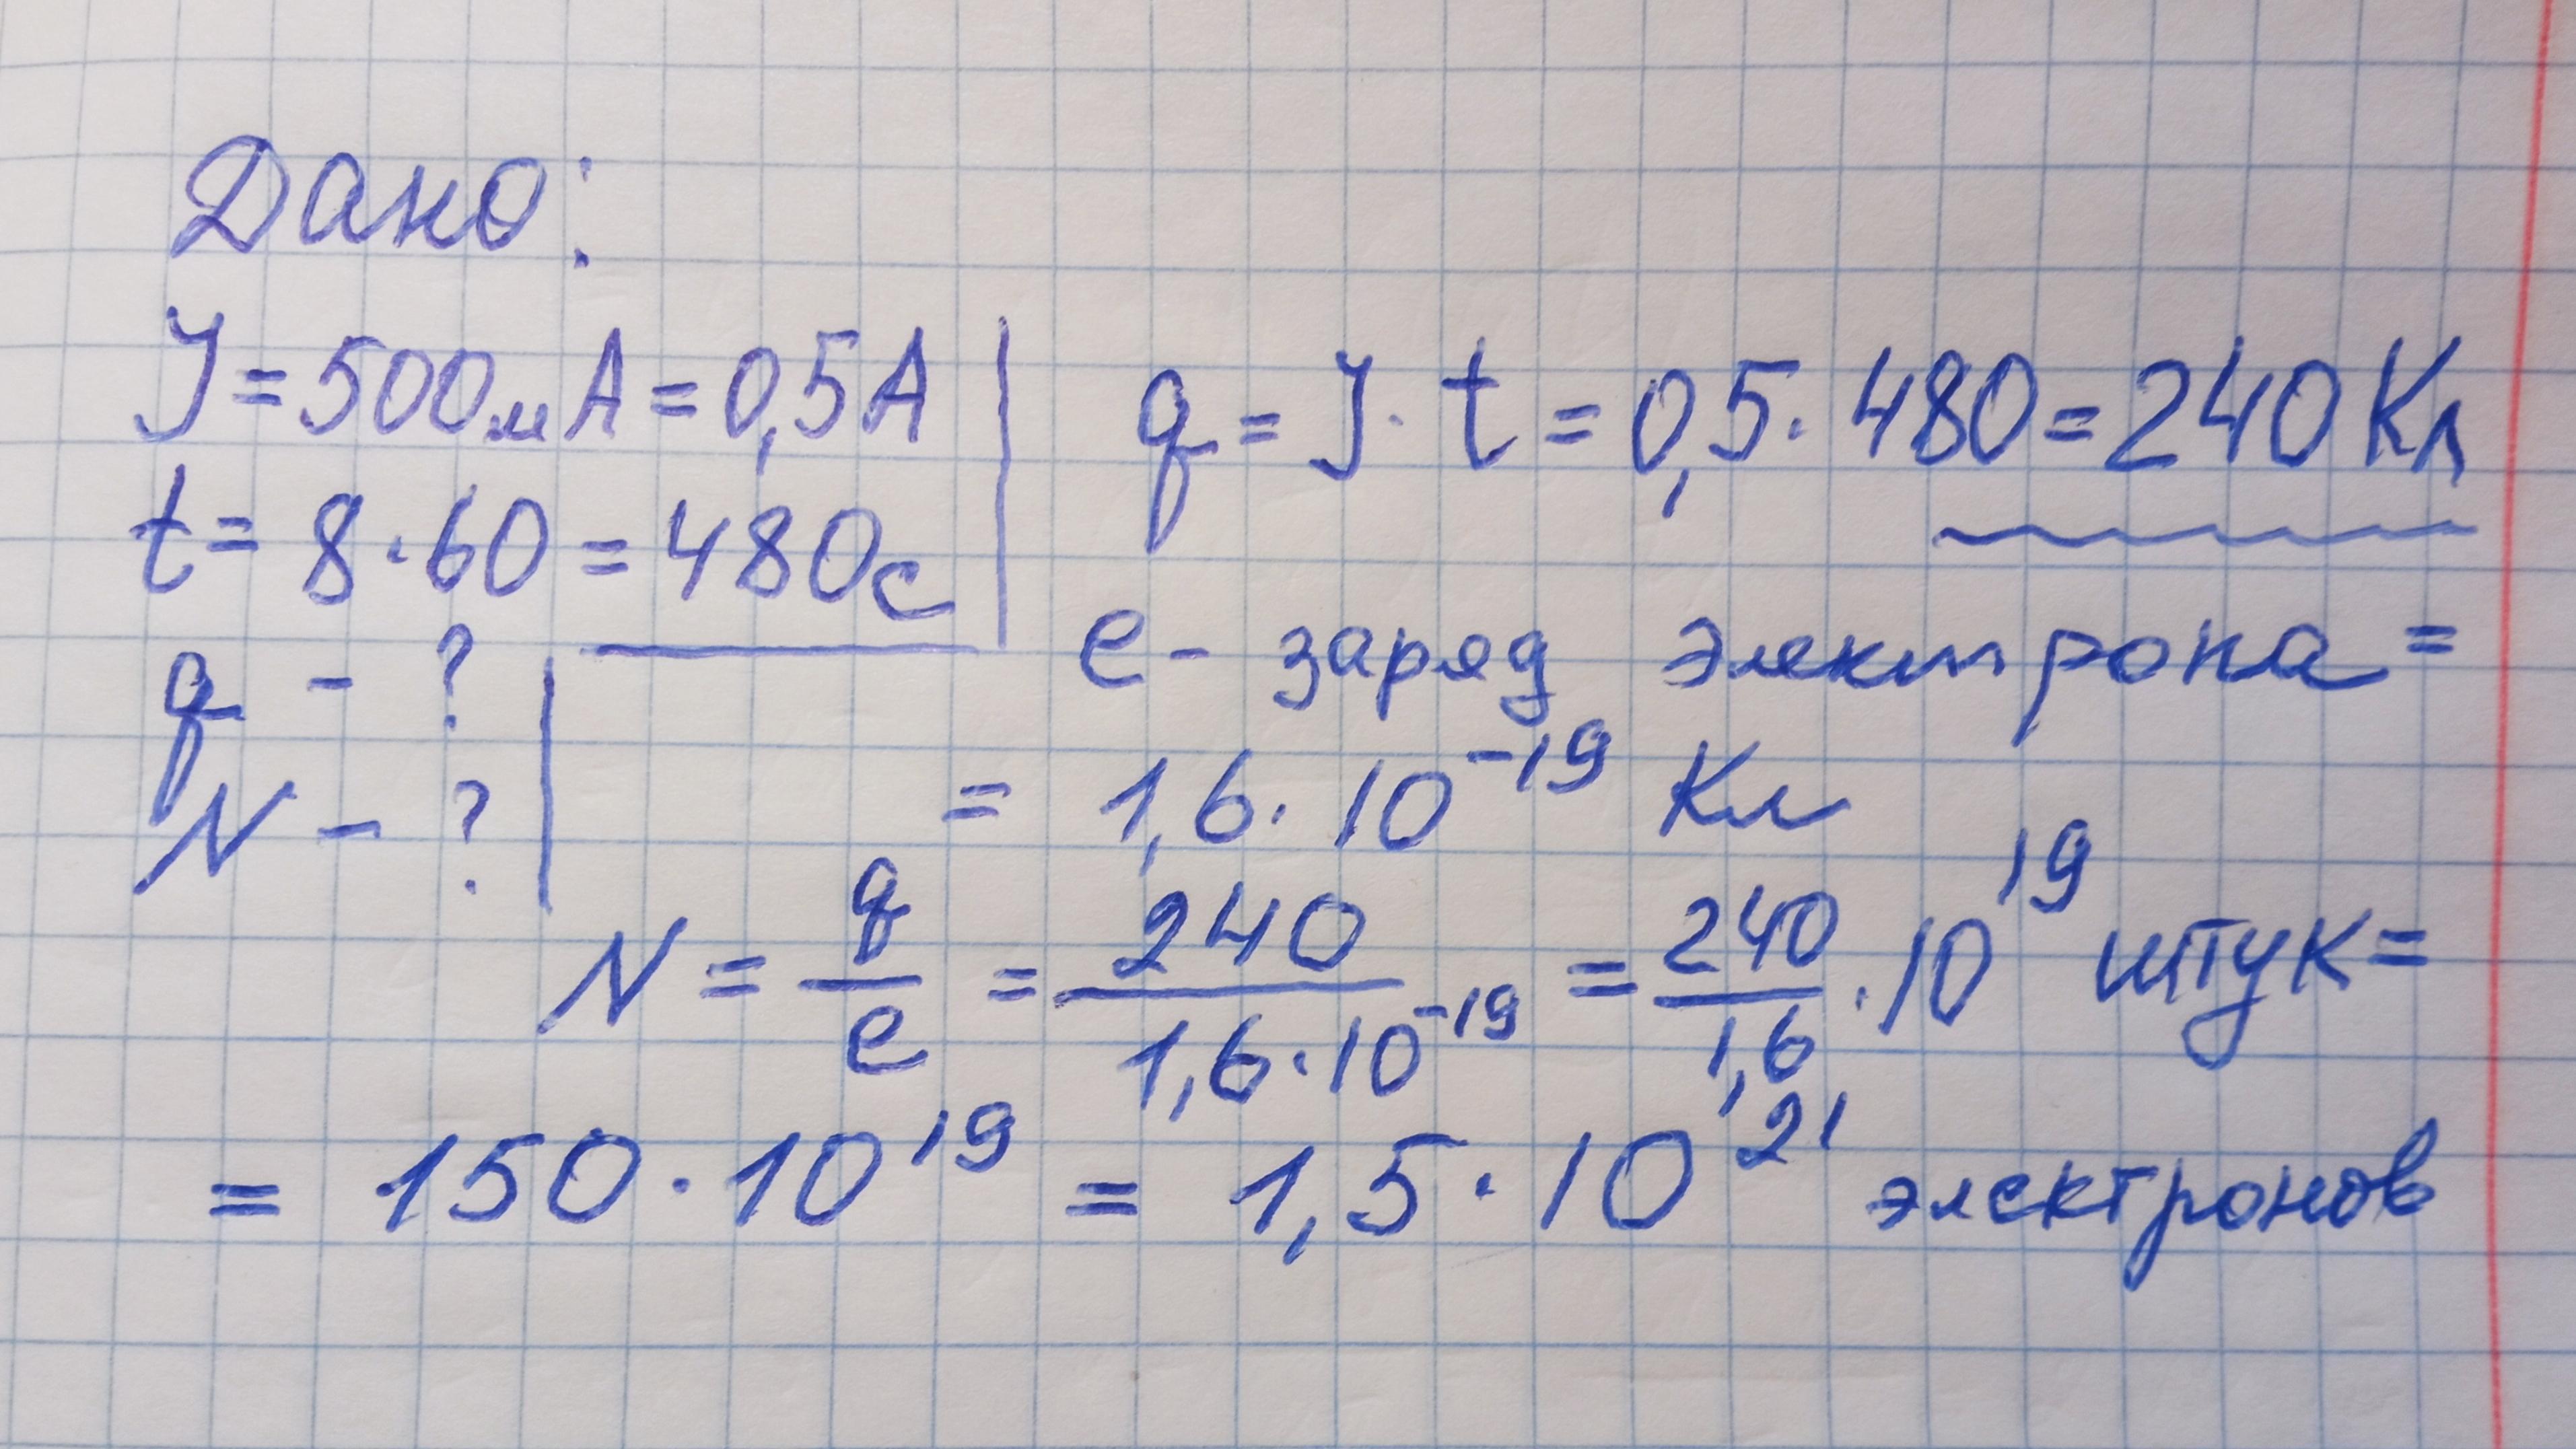 Дано:
J = 500 мА = 0,5 А
t = 8 · 60 = 480 с
q - ?
N - ?
q = J · t = 0,5 · 480 = 240 Кл
e - заряд электрона =
= 1,6 · 10⁻¹⁹ Кл
N = q/e = 240/(1,6 · 10⁻¹⁹) = 240/1,6 · 10¹⁹ штук =
= 150 · 10¹⁹ = 1,5 · 10²¹ электронов